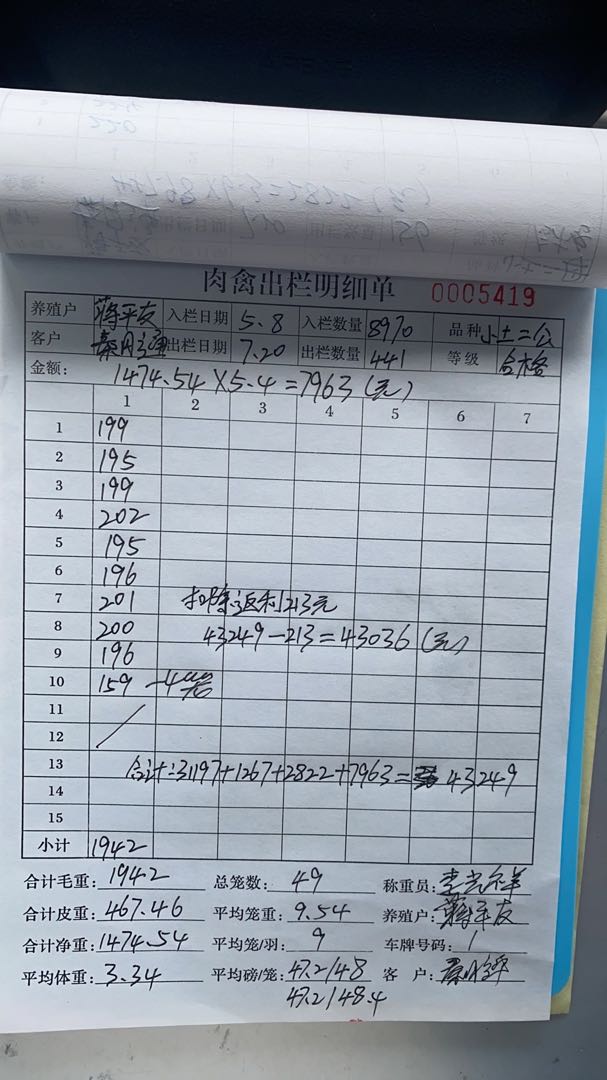 肉禽出栏明细单 0005419
养殖户 蒋平友 入栏日期 5.8 入栏数量 8970 品种 小土二公
客户 出栏日期 7.20 出栏数量 441 等级 合格
金额: 1474.54×5.4=7963(元)
1 2 3 4 5 6 7
1 199
2 195
3 199
4 202
5 195
6 196
7 201 扣除返利213元
8 200 43249-213=43036(元)
9 196
10 159 -4笼
11
12
13 合计:31197+1267+2822+7963= 43249
14
15
小计 1942
合计毛重: 1942 总笼数: 49 称重员:
合计皮重: 467.46 平均笼重: 9.54 养殖户: 蒋平友
合计净重: 1474.54 平均笼/羽: 9 车牌号码: 1
平均体重: 3.34 平均磅/笼: 47.2/48 客 户:
47.2/48.4